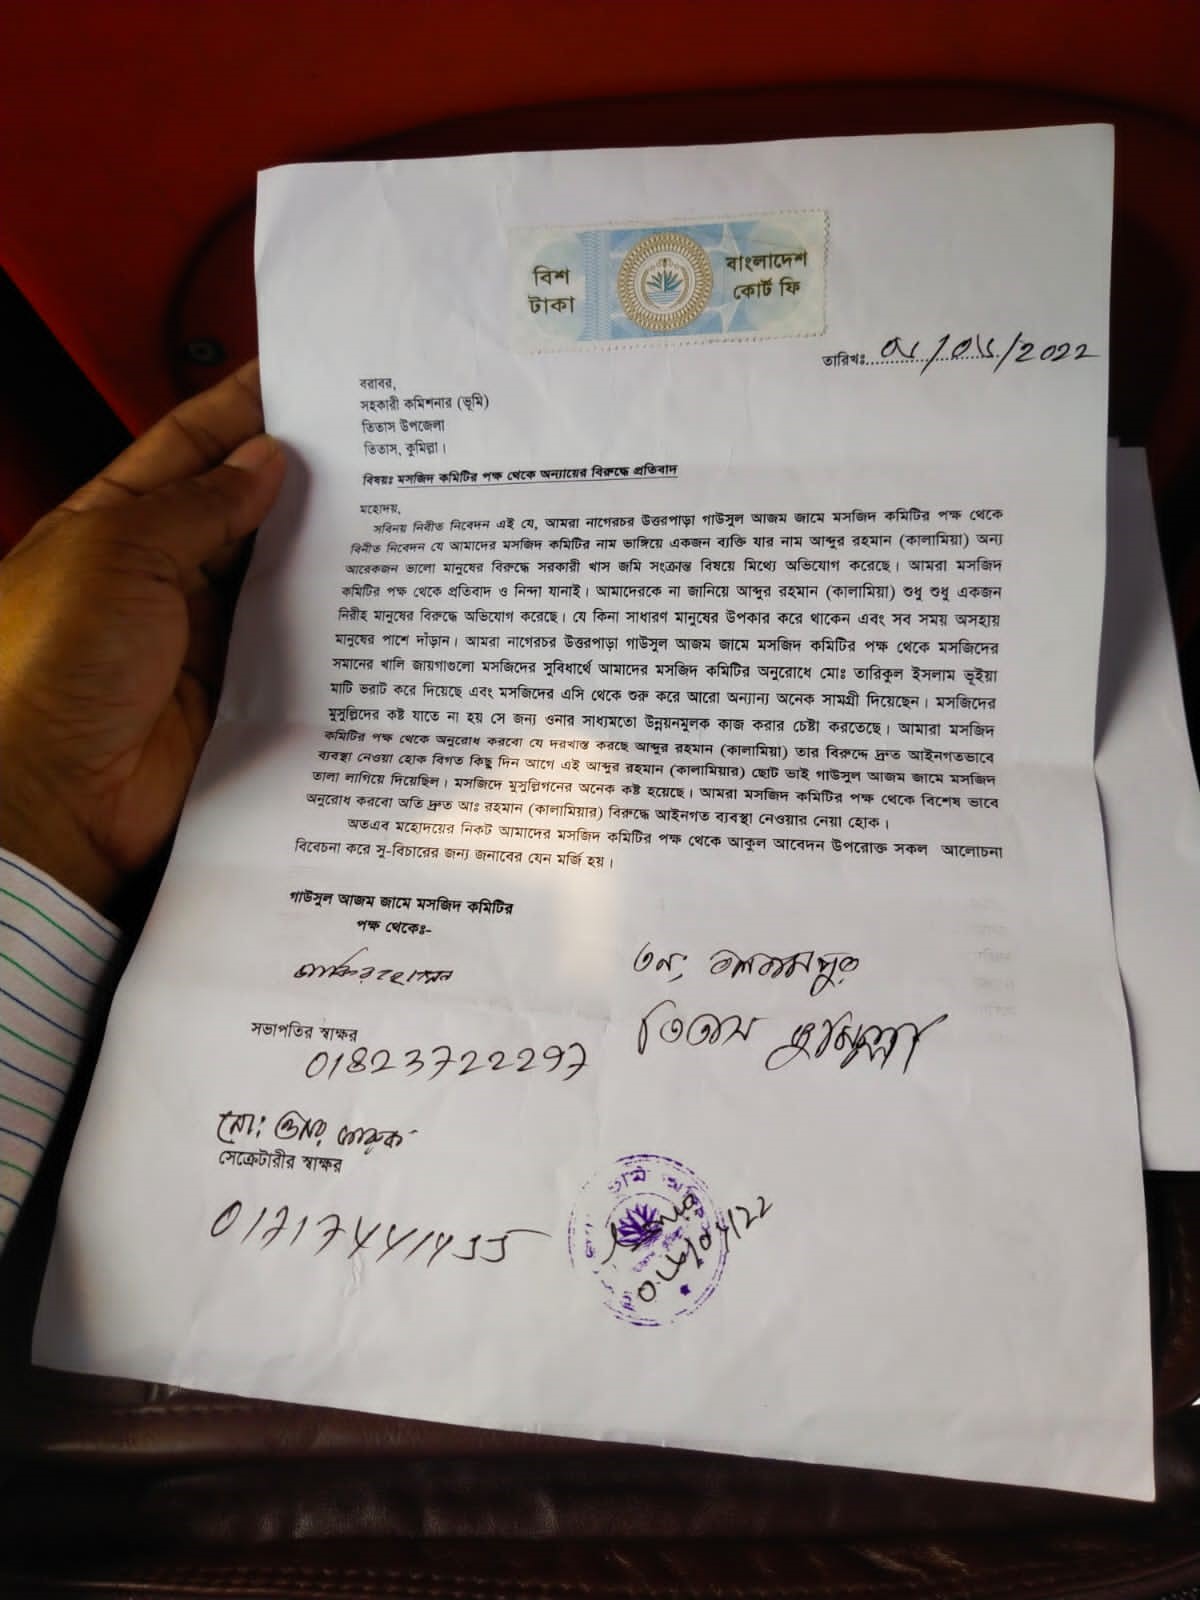 বিশ
টাকা
বাংলাদেশ
কোর্ট ফি
তারিখঃ............../2022
বরাবর,
সহকারী কমিশনার (ভূমি)
তিতাস উপজেলা
তিতাস, কুমিল্লা।
বিষয়ঃ মসজিদ কমিটির পক্ষ থেকে অন্যায়ের বিরুদ্ধে প্রতিবাদ
মহোদয়,
সবিনয় নিবীত নিবেদন এই যে, আমরা নাগেরচর উত্তরপাড়া গাউসুল আজম জামে মসজিদ কমিটির পক্ষ থেকে
বিনীত নিবেদন যে আমাদের মসজিদ কমিটির নাম ভাঙ্গিয়ে একজন ব্যক্তি যার নাম আব্দুর রহমান (কালামিয়া) অন্য
আরেকজন ভালো মানুষের বিরুদ্ধে সরকারী খাস জমি সংক্রান্ত বিষয়ে মিথ্যে অভিযোগ করেছে। আমরা মসজিদ
কমিটির পক্ষ থেকে প্রতিবাদ ও নিন্দা যানাই। আমাদেরকে না জানিয়ে আব্দুর রহমান (কালামিয়া) শুধু শুধু একজন
নিরীহ মানুষের বিরুদ্ধে অভিযোগ করেছে। যে কিনা সাধারণ মানুষের উপকার করে থাকেন এবং সব সময় অসহায়
মানুষের পাশে দাঁড়ান। আমরা নাগেরচর উত্তরপাড়া গাউসুল আজম জামে মসজিদ কমিটির পক্ষ থেকে মসজিদের
সমানের খালি জায়গাগুলো মসজিদের সুবিধার্থে আমাদের মসজিদ কমিটির অনুরোধে মোঃ তারিকুল ইসলাম ভূইয়া
মাটি ভরাট করে দিয়েছে এবং মসজিদের এসি থেকে শুরু করে আরো অন্যান্য অনেক সামগ্রী দিয়েছেন। মসজিদের
মুসুল্লিদের কষ্ট যাতে না হয় সে জন্য ওনার সাধ্যমতো উন্নয়নমুলক কাজ করার চেষ্টা করতেছে। আমারা মসজিদ
কমিটির পক্ষ থেকে অনুরোধ করবো যে দরখাস্ত করছে আব্দুর রহমান (কালামিয়া) তার বিরুদ্দে দ্রুত আইনগতভাবে
ব্যবস্থা নেওয়া হোক বিগত কিছু দিন আগে এই আব্দুর রহমান (কালামিয়ার) ছোট ভাই গাউসুল আজম জামে মসজিদ
তালা লাগিয়ে দিয়েছিল। মসজিদে মুসুল্লিগনের অনেক কষ্ট হয়েছে। আমরা মসজিদ কমিটির পক্ষ থেকে বিশেষ ভাবে
অনুরোধ করবো অতি দ্রুত আঃ রহমান (কালামিয়ার) বিরুদ্ধে আইনগত ব্যবস্থা নেওয়ার নেয়া হোক।
অতএব মহোদয়ের নিকট আমাদের মসজিদ কমিটির পক্ষ থেকে আকুল আবেদন উপরোক্ত সকল আলোচনা
বিবেচনা করে সু-বিচারের জন্য জনাবের যেন মর্জি হয়।
গাউসুল আজম জামে মসজিদ কমিটির
পক্ষ থেকেঃ-
সভাপতির স্বাক্ষর
01823722297
তিতাস কুমিল্লা
মো: ওমর ফারুক
সেক্রেটারীর স্বাক্ষর